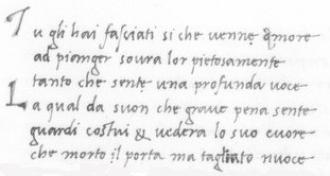 Tu gli hai fasciati si che venne Amore
ad pianger soura lor pietosamente
tanto che sente una profunda uoce
La qual da suon che graue pena sente
guardi costui & uedera lo suo cuore
che morto il porta ma tagliato nuoce